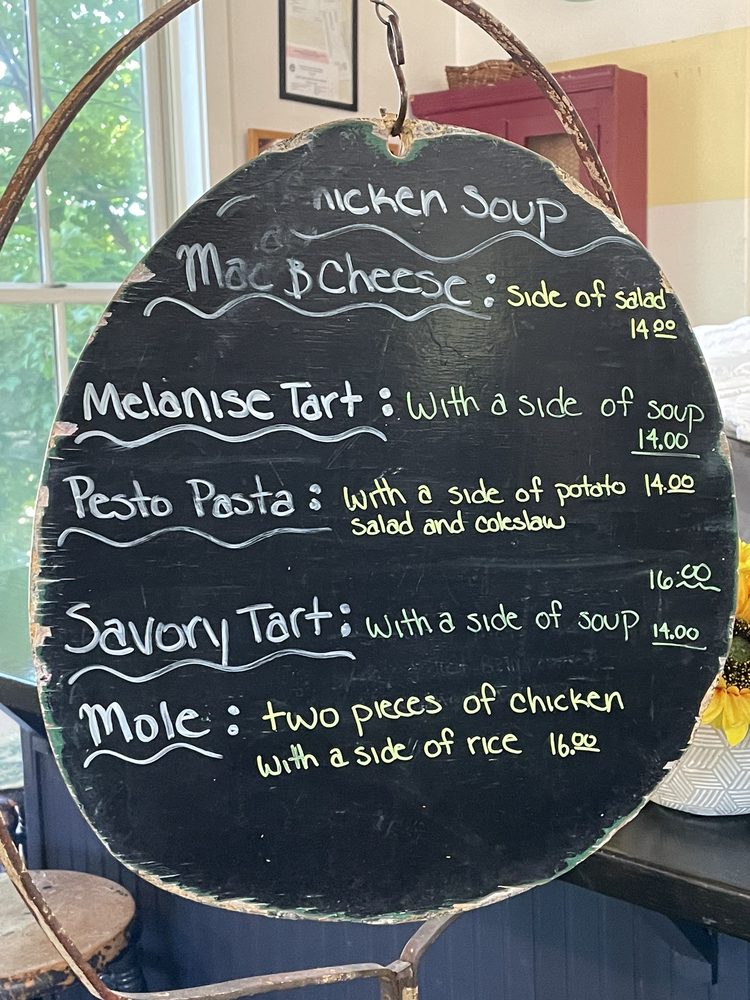 hicken Soup
Mac & Cheese: Side of salad
14.00
Melanise Tart: With a side of soup
14.00
Pesto Pasta: with a side of potato 14.00
salad and coleslaw
16.00
Savory Tart: with a side of soup 14.00
Mole: two pieces of chicken
with a side of rice 16.00